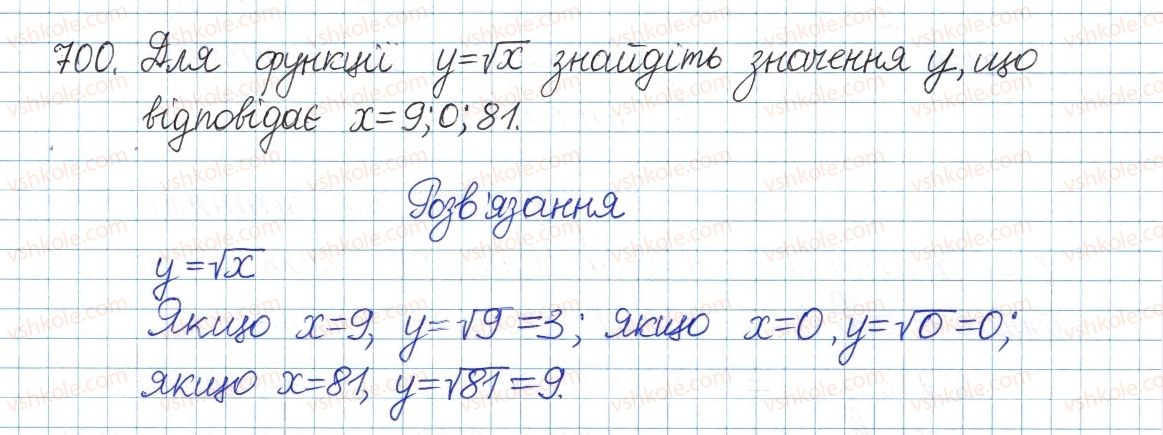 700. Для функції y=√x знайдіть значення y, що
відповідає x=9; 0; 81.
Розв'язання
y=√x
Якщо x=9, y=√9=3; якщо x=0, y=√0=0;
якщо x=81, y=√81=9.